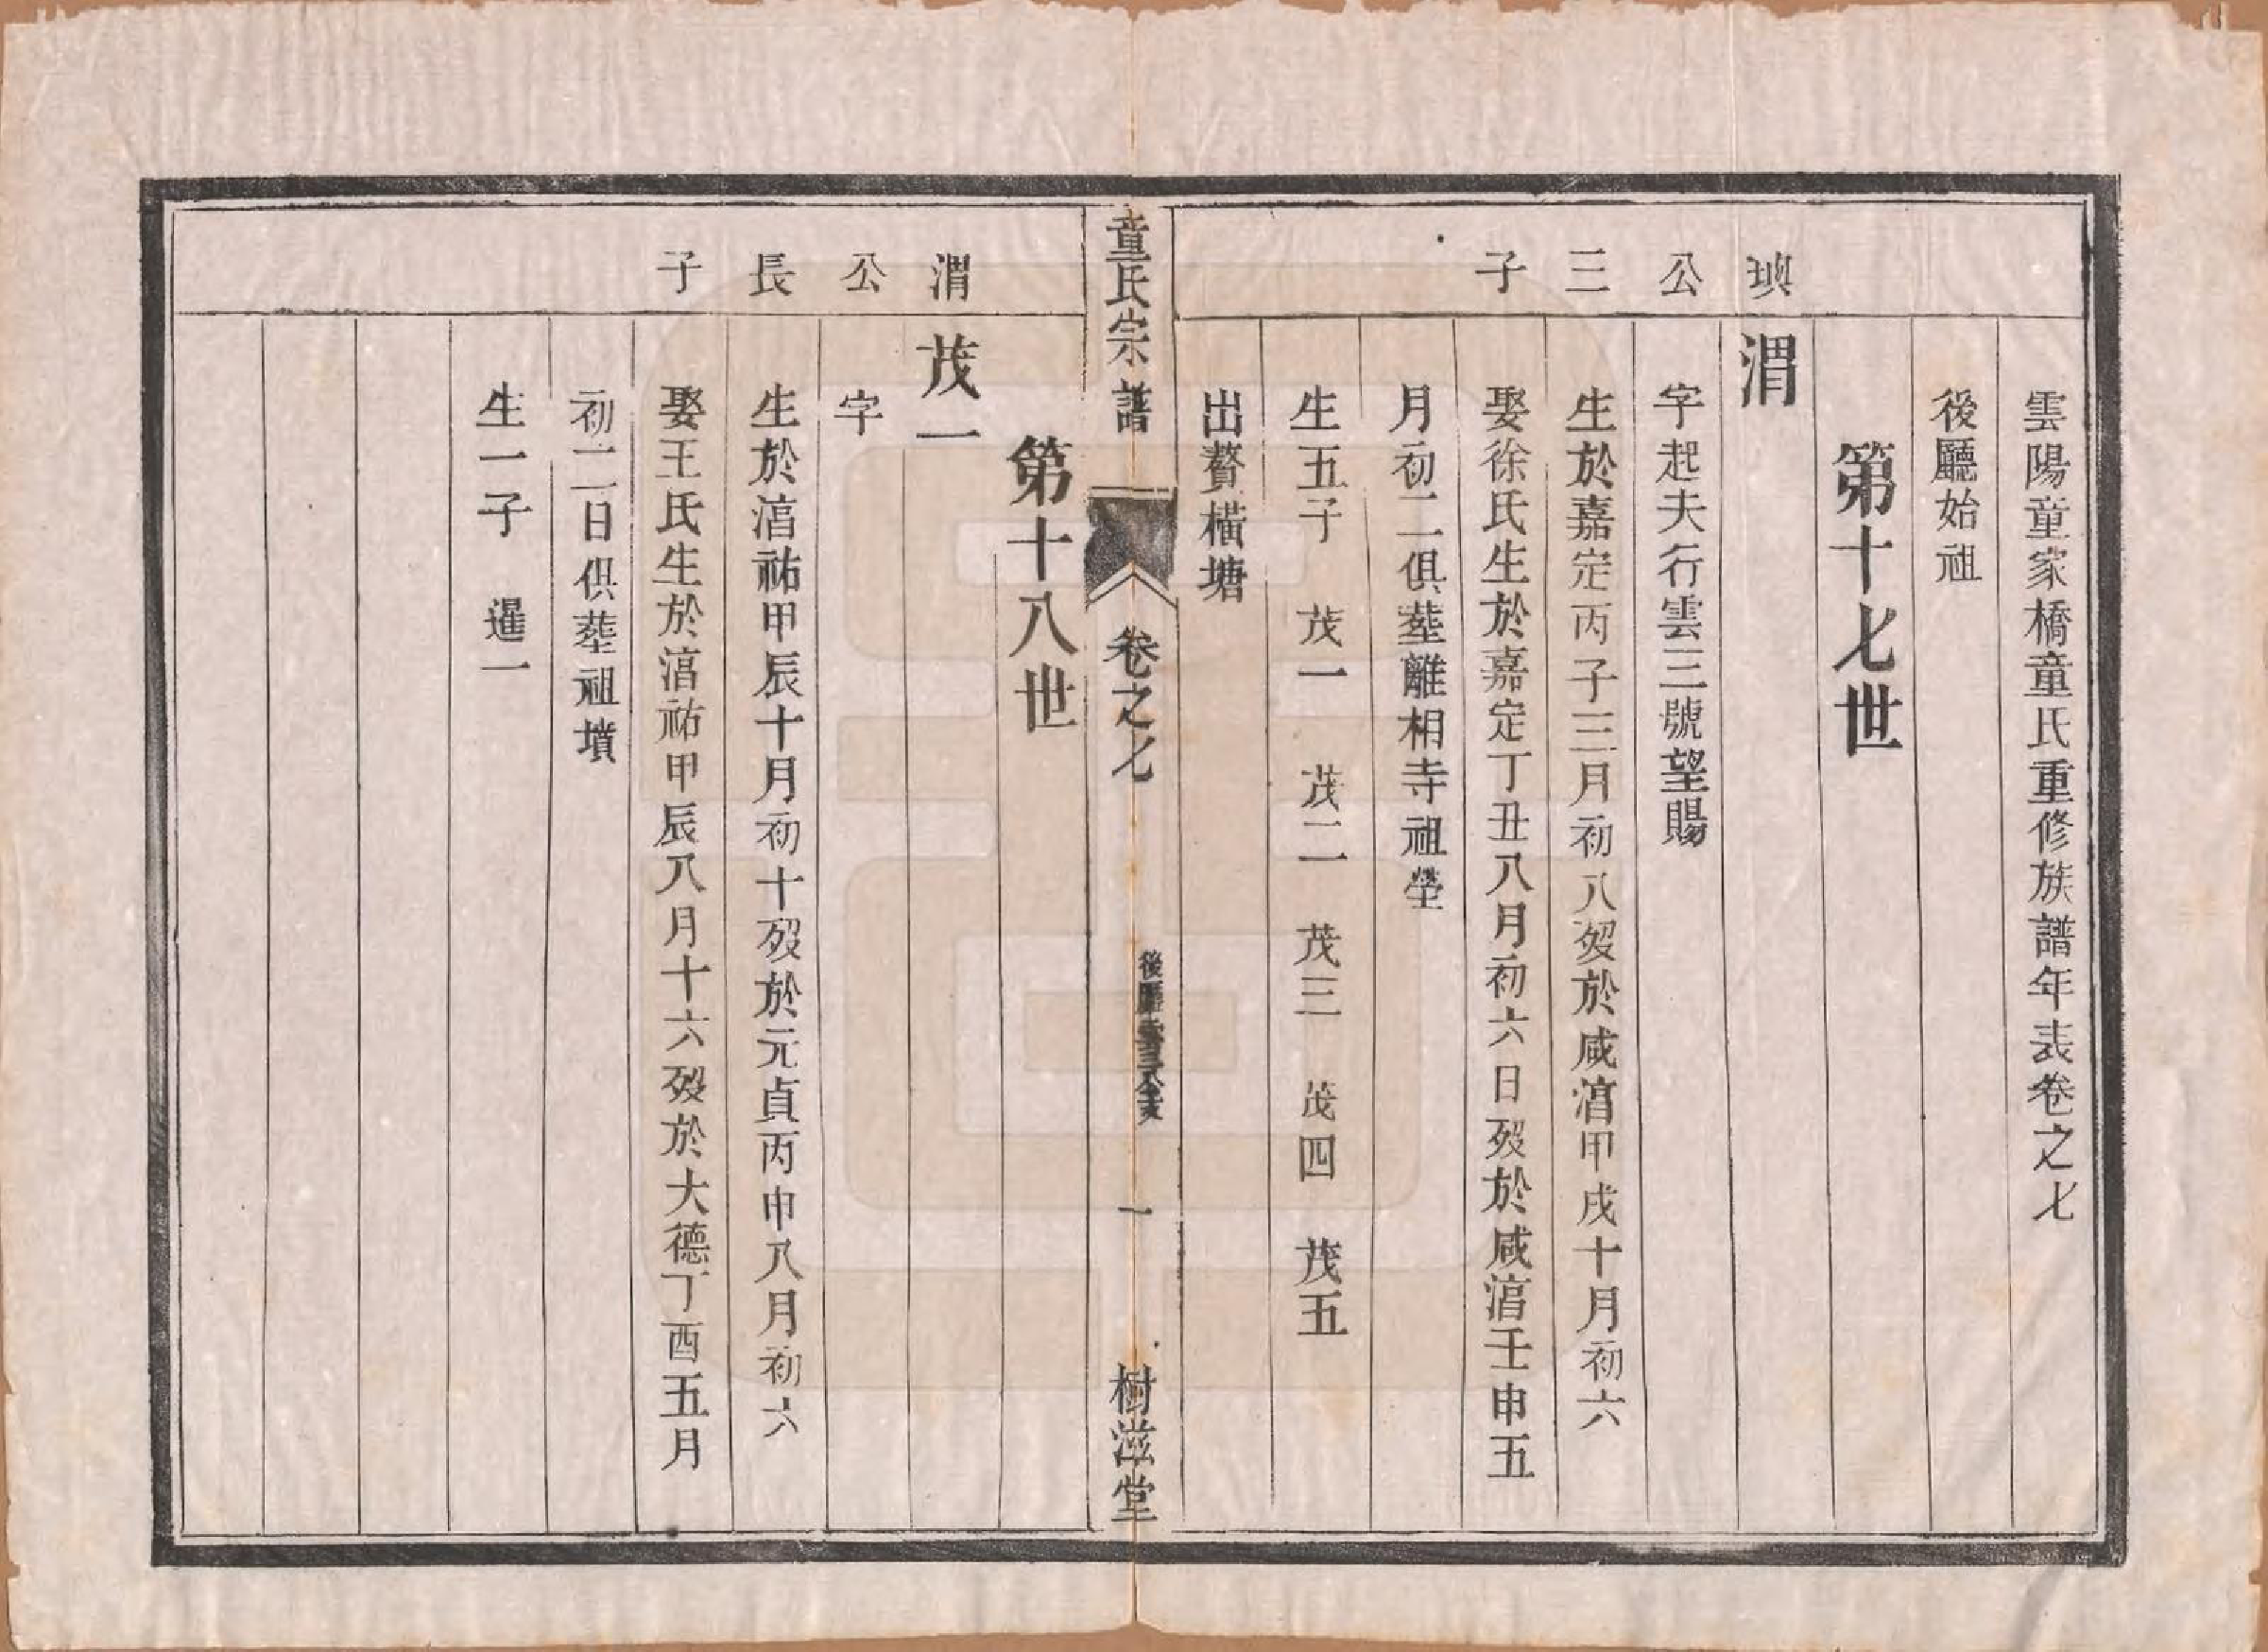 雲陽童家橋童氏重修族譜年表卷之七
後廳始祖
第十七世
塤公三子
渭
字起夫行雲三號望賜
生於嘉定丙子三月初八歿於咸淳甲戌十月初六
娶徐氏生於嘉定丁丑八月初六日歿於咸淳壬申五
月初二俱塟離相寺祖塋
生五子 茂一 茂二 茂三 茂四 茂五
出贅橫塘
童氏宗譜
卷之七
後廳
一
樹滋堂
第十八世
渭公長子
茂一
字
生於淳祐甲辰十月初十歿於元貞丙申八月初六
娶王氏生於淳祐甲辰八月十六歿於大德丁酉五月
初二日俱塟祖墳
生一子 暹一